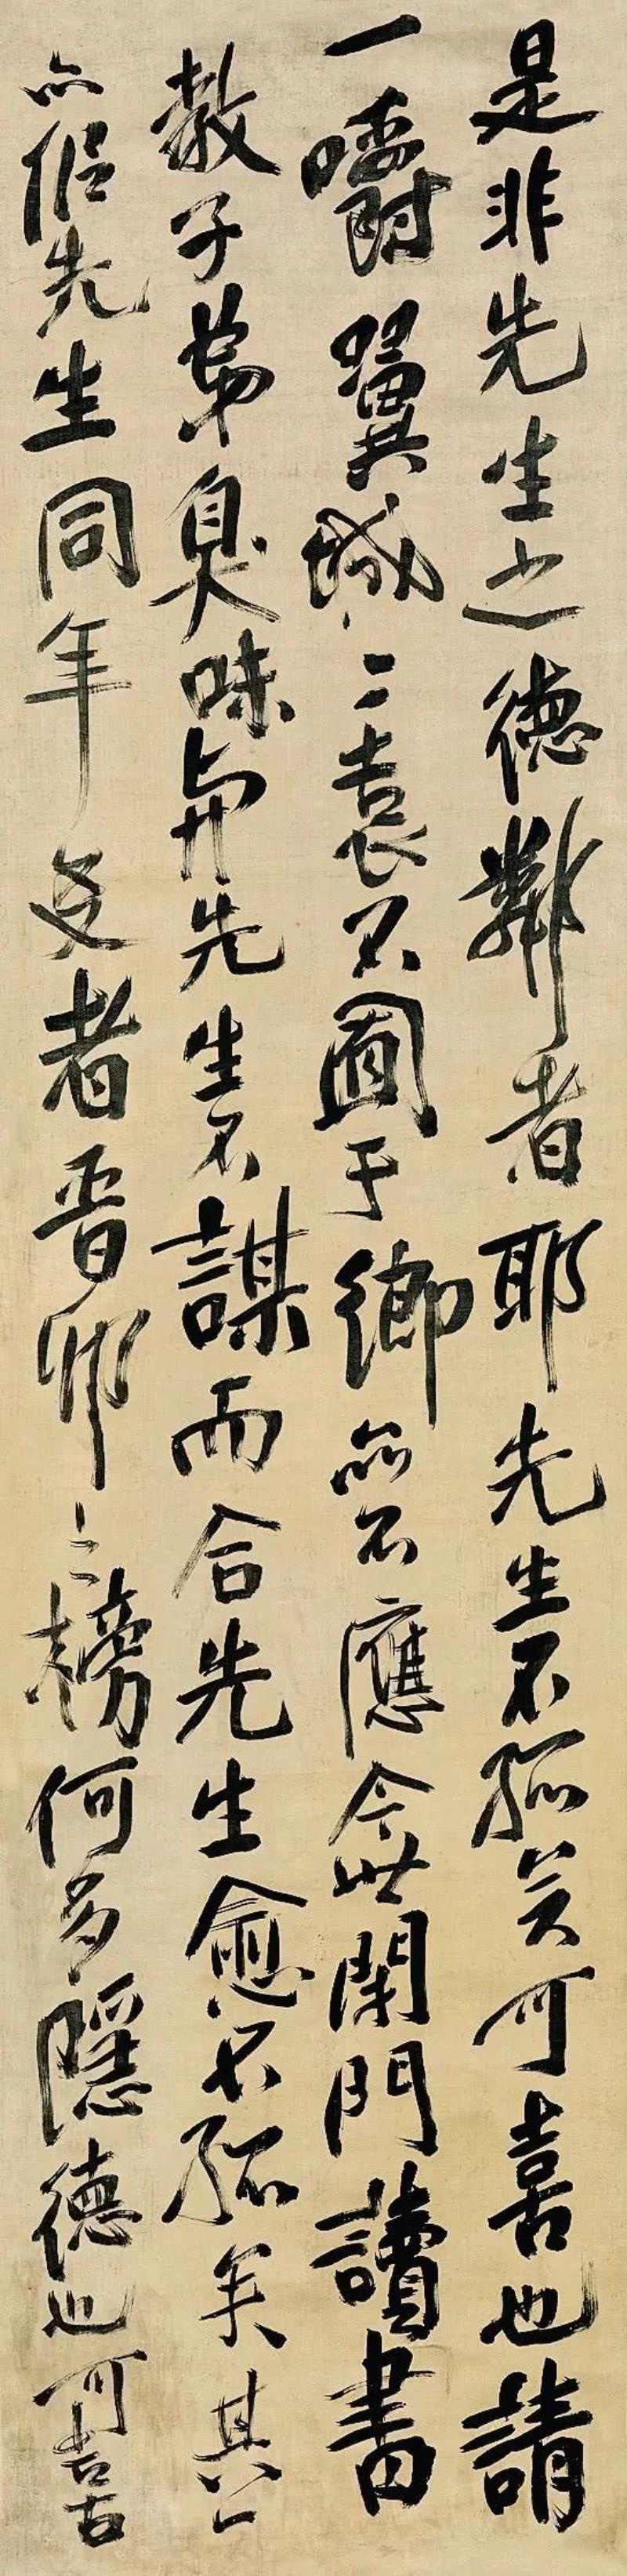 是非先生之德鄰者耶先生不孤矣可喜也請
一嚼翼城二袁不圖于鄉亦不應今世閑門讀書
教子弟臭味與先生不謀而合先生愈不孤矣其一
亦侶先生同年友者晉鄉之榜何多隱德也可喜